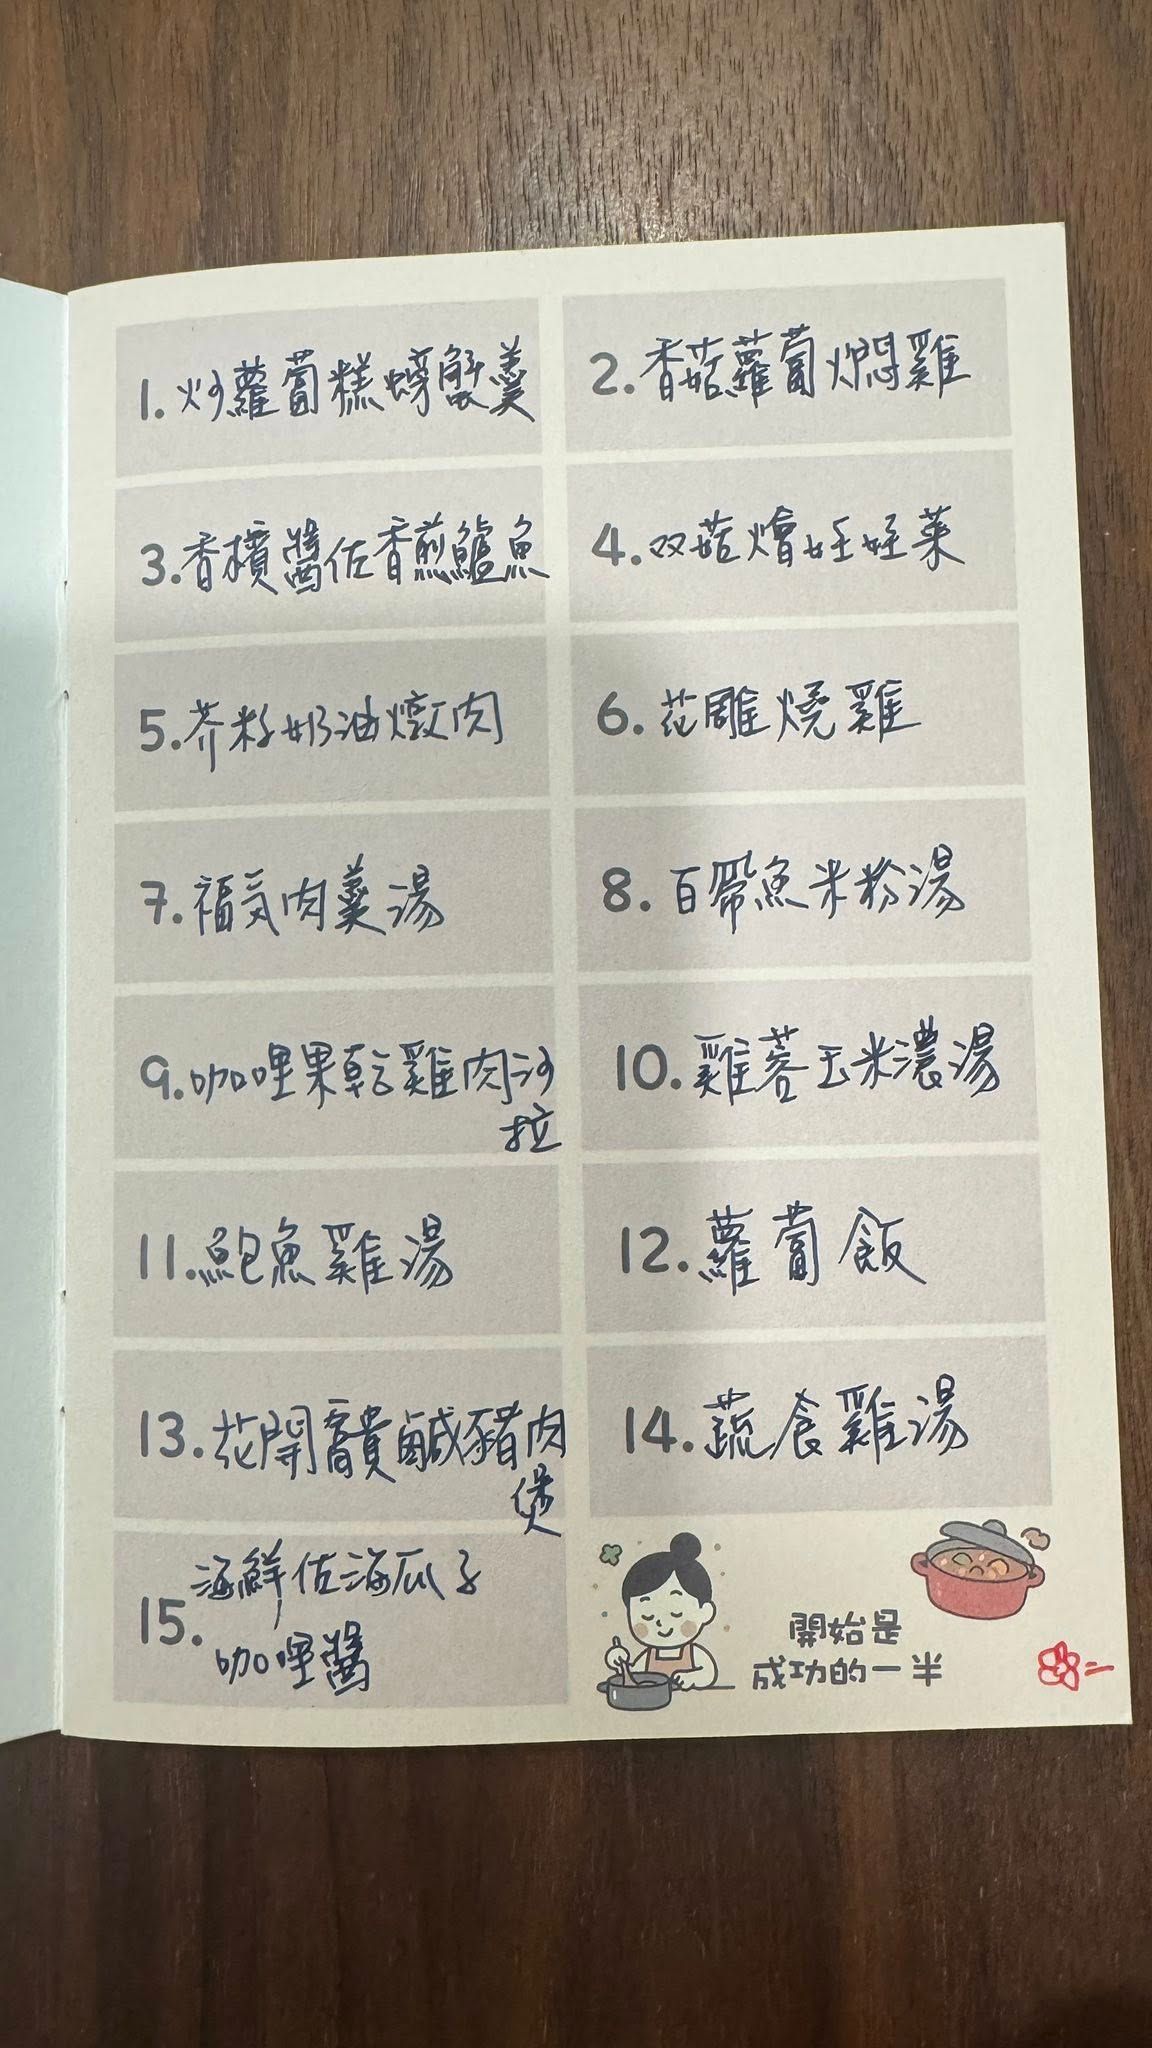 1. 炒蘿蔔糕螃蟹羹
2. 香菇蘿蔔燜雞
3. 香檳醬佐香煎鱸魚
4. 双菇燴娃娃菜
5. 芥籽奶油燉肉
6. 花雕燒雞
7. 福氣肉羹湯
8. 白帶魚米粉湯
9. 咖哩果乾雞肉沙
拉
10. 雞蓉玉米濃湯
11. 鮑魚雞湯
12. 蘿蔔飯
13. 花開富貴鹹豬肉
煲
14. 蔬食雞湯
15. 海鮮佐海瓜子
咖哩醬
開始是
成功的一半